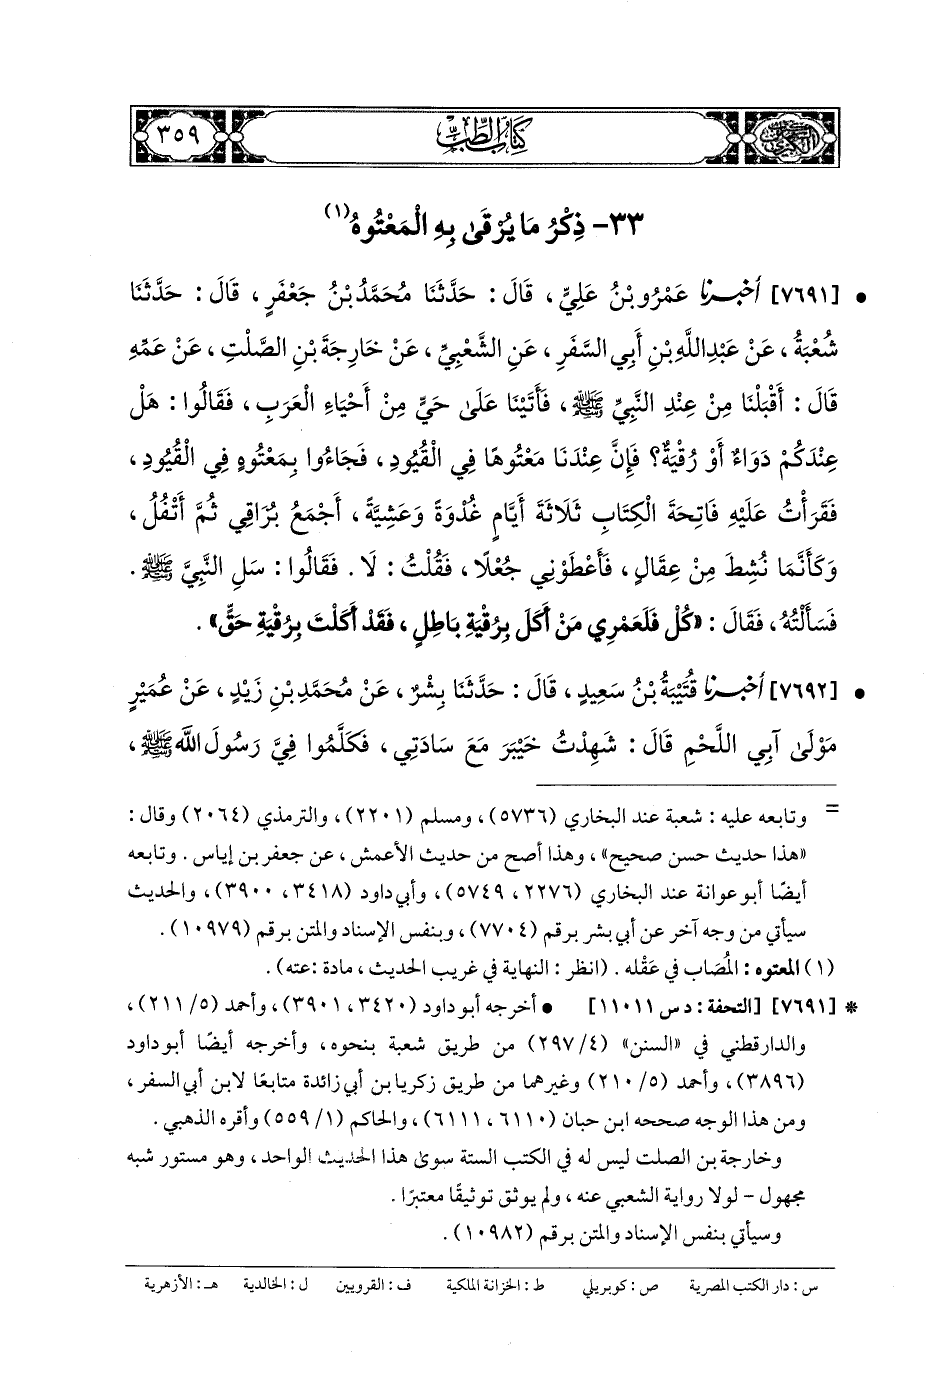 السنن الكبرى
كتاب الطب
٣٥٩
٣٣- ذِكْرُ مَا يُرْقَىٰ بِهِ الْمَعْتُوهُ(١)
• [٧٦٩١] أخبرنا عَمْرُو بْنُ عَلِيٍّ، قَالَ: حَدَّثَنَا مُحَمَّدُ بْنُ جَعْفَرٍ، قَالَ: حَدَّثَنَا
شُعْبَةُ، عَنْ عَبْدِاللَّهِ بْنِ أَبِي السَّفَرِ، عَنِ الشَّعْبِيِّ، عَنْ خَارِجَةَ بْنِ الصَّلْتِ، عَنْ عَمِّهِ
قَالَ: أَقْبَلْنَا مِنْ عِنْدِ النَّبِيِّ ﷺ، فَأَتَيْنَا عَلَىٰ حَيٍّ مِنْ أَحْيَاءِ الْعَرَبِ، فَقَالُوا: هَلْ
عِنْدَكُمْ دَوَاءٌ أَوْ رُقْيَةٌ؟ فَإِنَّ عِنْدَنَا مَعْتُوهًا فِي الْقُيُودِ، فَجَاءُوا بِمَعْتُوهٍ فِي الْقُيُودِ،
فَقَرَأْتُ عَلَيْهِ فَاتِحَةَ الْكِتَابِ ثَلَاثَةَ أَيَّامٍ غُدْوَةً وَعَشِيَّةً، أَجْمَعُ بُزَاقِي ثُمَّ أَتْفُلُ،
وَكَأَنَّمَا نُشِطَ مِنْ عِقَالٍ، فَأَعْطَوْنِي جُعْلًا، فَقُلْتُ: لَا. فَقَالُوا: سَلِ النَّبِيَّ ﷺ.
فَسَأَلْتُهُ، فَقَالَ: «كُلْ فَلَعَمْرِي مَنْ أَكَلَ بِرُقْيَةِ بَاطِلٍ، فَقَدْ أَكَلْتَ بِرُقْيَةِ حَقٍّ».
• [٧٦٩٢] أخبرنا قُتَيْبَةُ بْنُ سَعِيدٍ، قَالَ: حَدَّثَنَا بِشْرٌ، عَنْ مُحَمَّدِ بْنِ زَيْدٍ، عَنْ عُمَيْرٍ
مَوْلَىٰ آبِي اللَّحْمِ قَالَ: شَهِدْتُ خَيْبَرَ مَعَ سَادَتِي، فَكَلَّمُوا فِيَّ رَسُولَ اللَّهِ ﷺ،
= وتابعه عليه: شعبة عند البخاري (٥٧٣٦)، ومسلم (٢٢٠١)، والترمذي (٢٠٦٤) وقال:
«هذا حديث حسن صحيح»، وهذا أصح من حديث الأعمش، عن جعفر بن إياس. وتابعه
أيضًا أبو عوانة عند البخاري (٢٢٧٦، ٥٧٤٩)، وأبي داود (٣٤١٨، ٣٩٠٠)، والحديث
سيأتي من وجه آخر عن أبي بشر برقم (٧٧٠٤)، وبنفس الإسناد والمتن برقم (١٠٩٧٩).
(١) المعتوه: المُصَاب في عَقْله. (انظر: النهاية في غريب الحديث، مادة: عته).
* [٧٦٩١] [التحفة: د س ١١٠١١] • أخرجه أبو داود (٣٤٢٠، ٣٩٠١)، وأحمد (٥/ ٢١١)،
والدارقطني في «السنن» (٤/ ٢٩٧) من طريق شعبة بنحوه، وأخرجه أيضًا أبو داود
(٣٨٩٦)، وأحمد (٥/ ٢١٠) وغيرهما من طريق زكريا بن أبي زائدة متابعًا لابن أبي السفر،
ومن هذا الوجه صححه ابن حبان (٦١١٠، ٦١١١)، والحاكم (١/ ٥٥٩) وأقره الذهبي.
وخارجة بن الصلت ليس له في الكتب الستة سوىٰ هذا الحديث الواحد، وهو مستور شبه
مجهول - لولا رواية الشعبي عنه، ولم يوثق توثيقًا معتبرًا.
وسيأتي بنفس الإسناد والمتن برقم (١٠٩٨٢).
س: دار الكتب المصرية ص: كوبريلي ط: الخزانة الملكية ف: القرويين ل: الخالدية هـ: الأزهرية